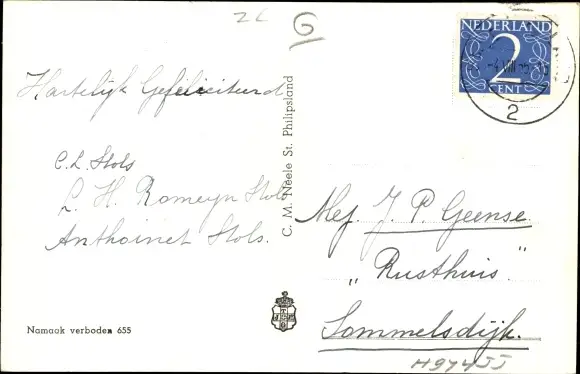 zL
G
NEDERLAND
2
CENT
2
Hartelijk Gefeliciteerd
C. L. Stols
L. H. Romeyn Stols
Anthoinet Stols.
C. M. Neele St. Philipsland
Mej. J. P. Geense
„Rusthuis”
Sommelsdijk.
H97455
Namaak verboden 655